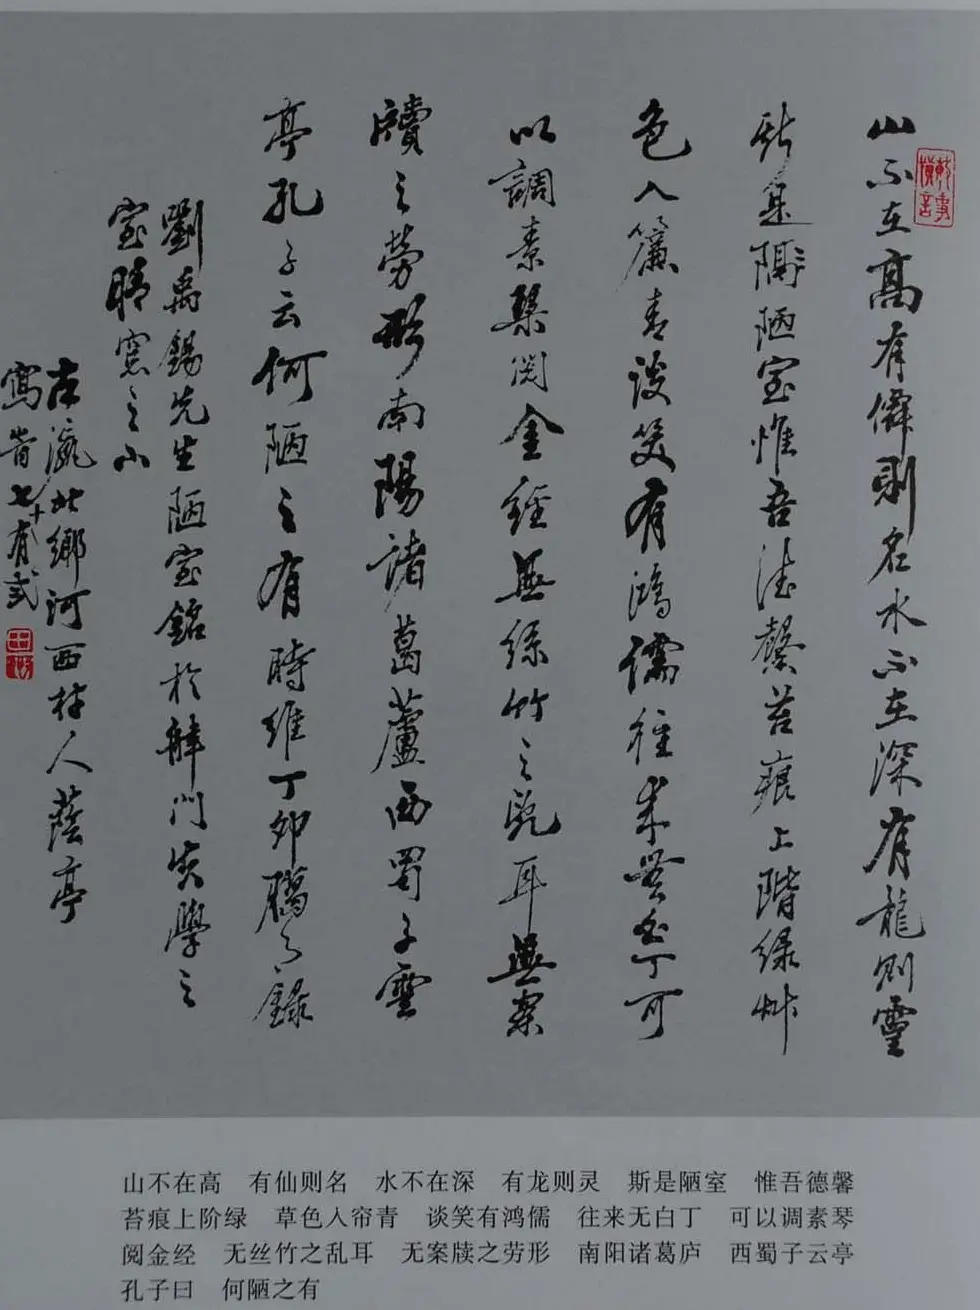 山不在高有僊則名水不在深有龍則靈
斯是陋室惟吾德馨苔痕上階綠艸
色入簾青談笑有鴻儒往來無白丁可
以調素琴閱金經無絲竹之亂耳無案
牘之勞形南陽諸葛廬西蜀子雲
亭孔子云何陋之有時維丁卯臈月錄
劉禹錫先生陋室銘於門實學之
室晴窓之下
古瀛北鄉河西村人蔭亭
寫旹七十有弎
山不在高 有仙则名 水不在深 有龙则灵 斯是陋室 惟吾德馨
苔痕上阶绿 草色入帘青 谈笑有鸿儒 往来无白丁 可以调素琴
阅金经 无丝竹之乱耳 无案牍之劳形 南阳诸葛庐 西蜀子云亭
孔子曰 何陋之有